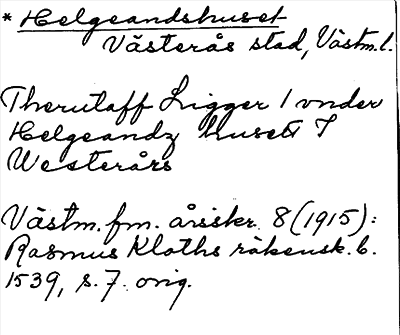 * Helgeandshuset
Västerås stad, Västm. l.
Therutaff Ligger / vnder
Helgeandz husett I
Westerårs
Västm. fm. årsskr. 8 (1915):
Rasmus Kloths räkensk. b.
1539, s. 7. orig.